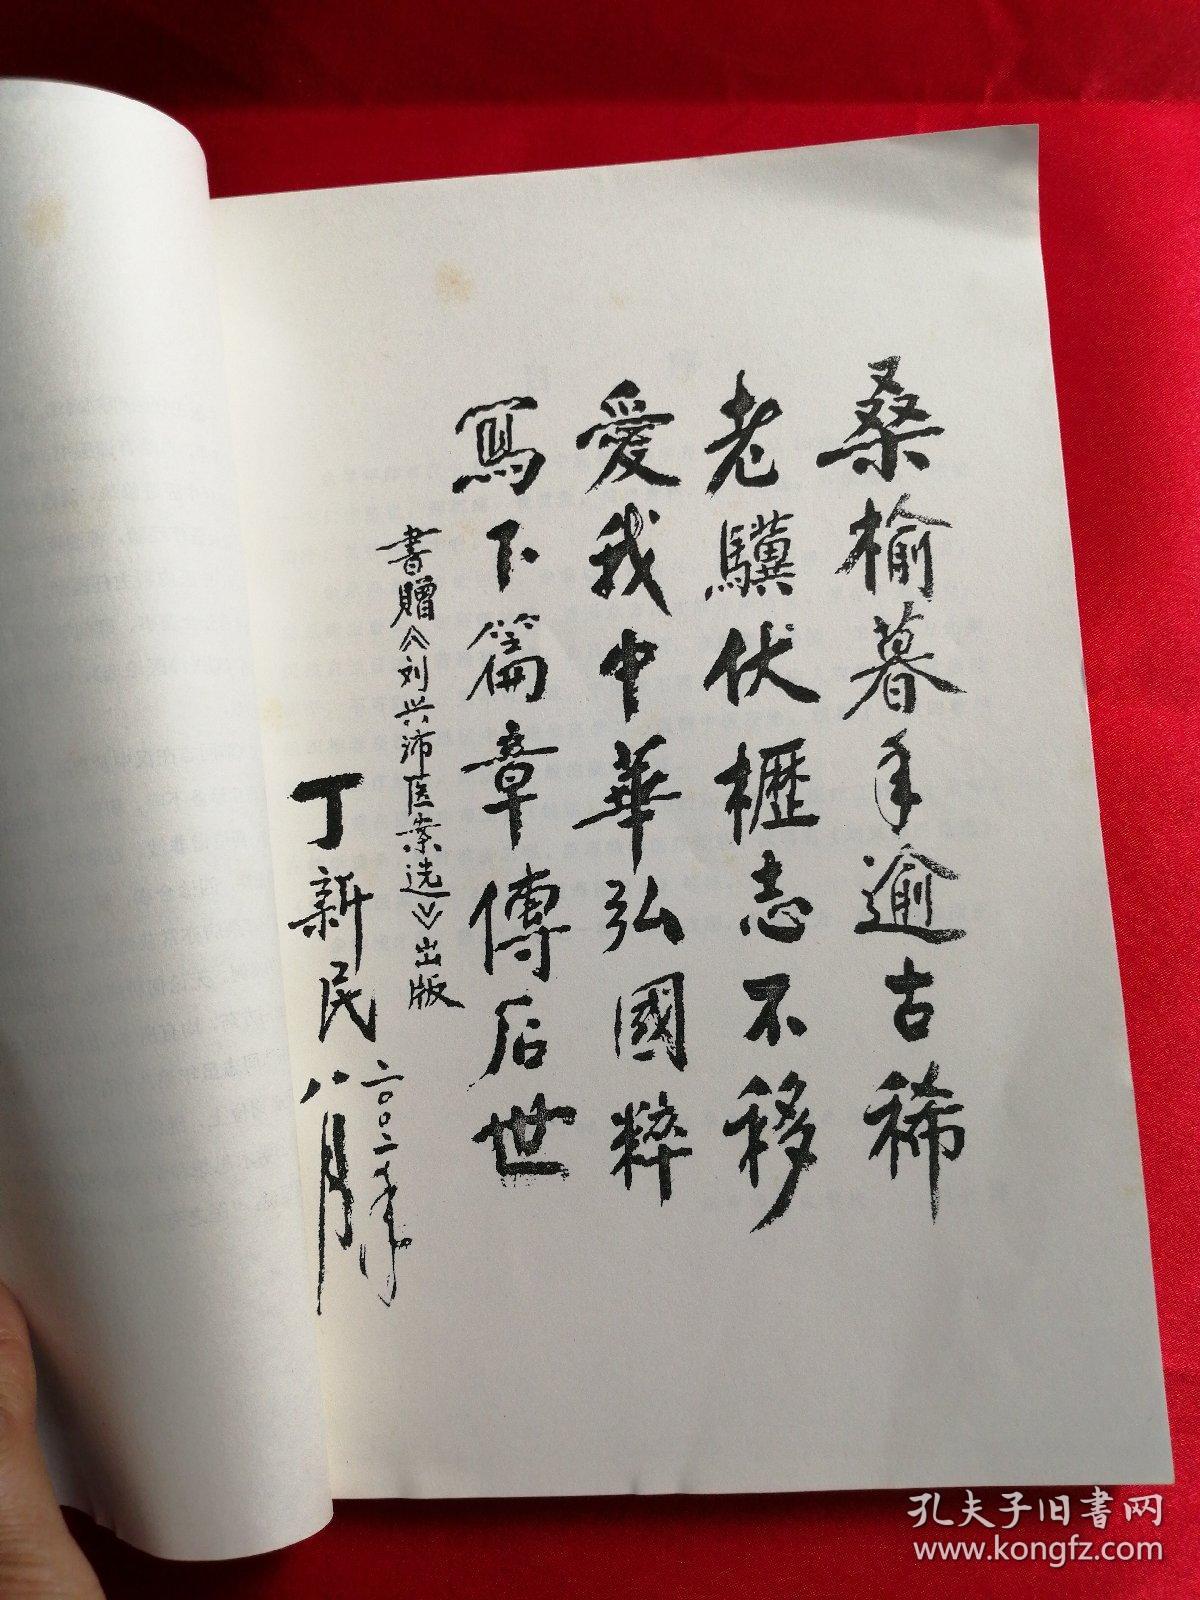 桑榆暮年逾古稀
老驥伏櫪志不移
愛我中華弘國粹
寫下篇章傳后世
書贈《刘兴沛医案选》出版
丁新民
二〇〇二年
八月
孔夫子旧書网
www.kongfz.com